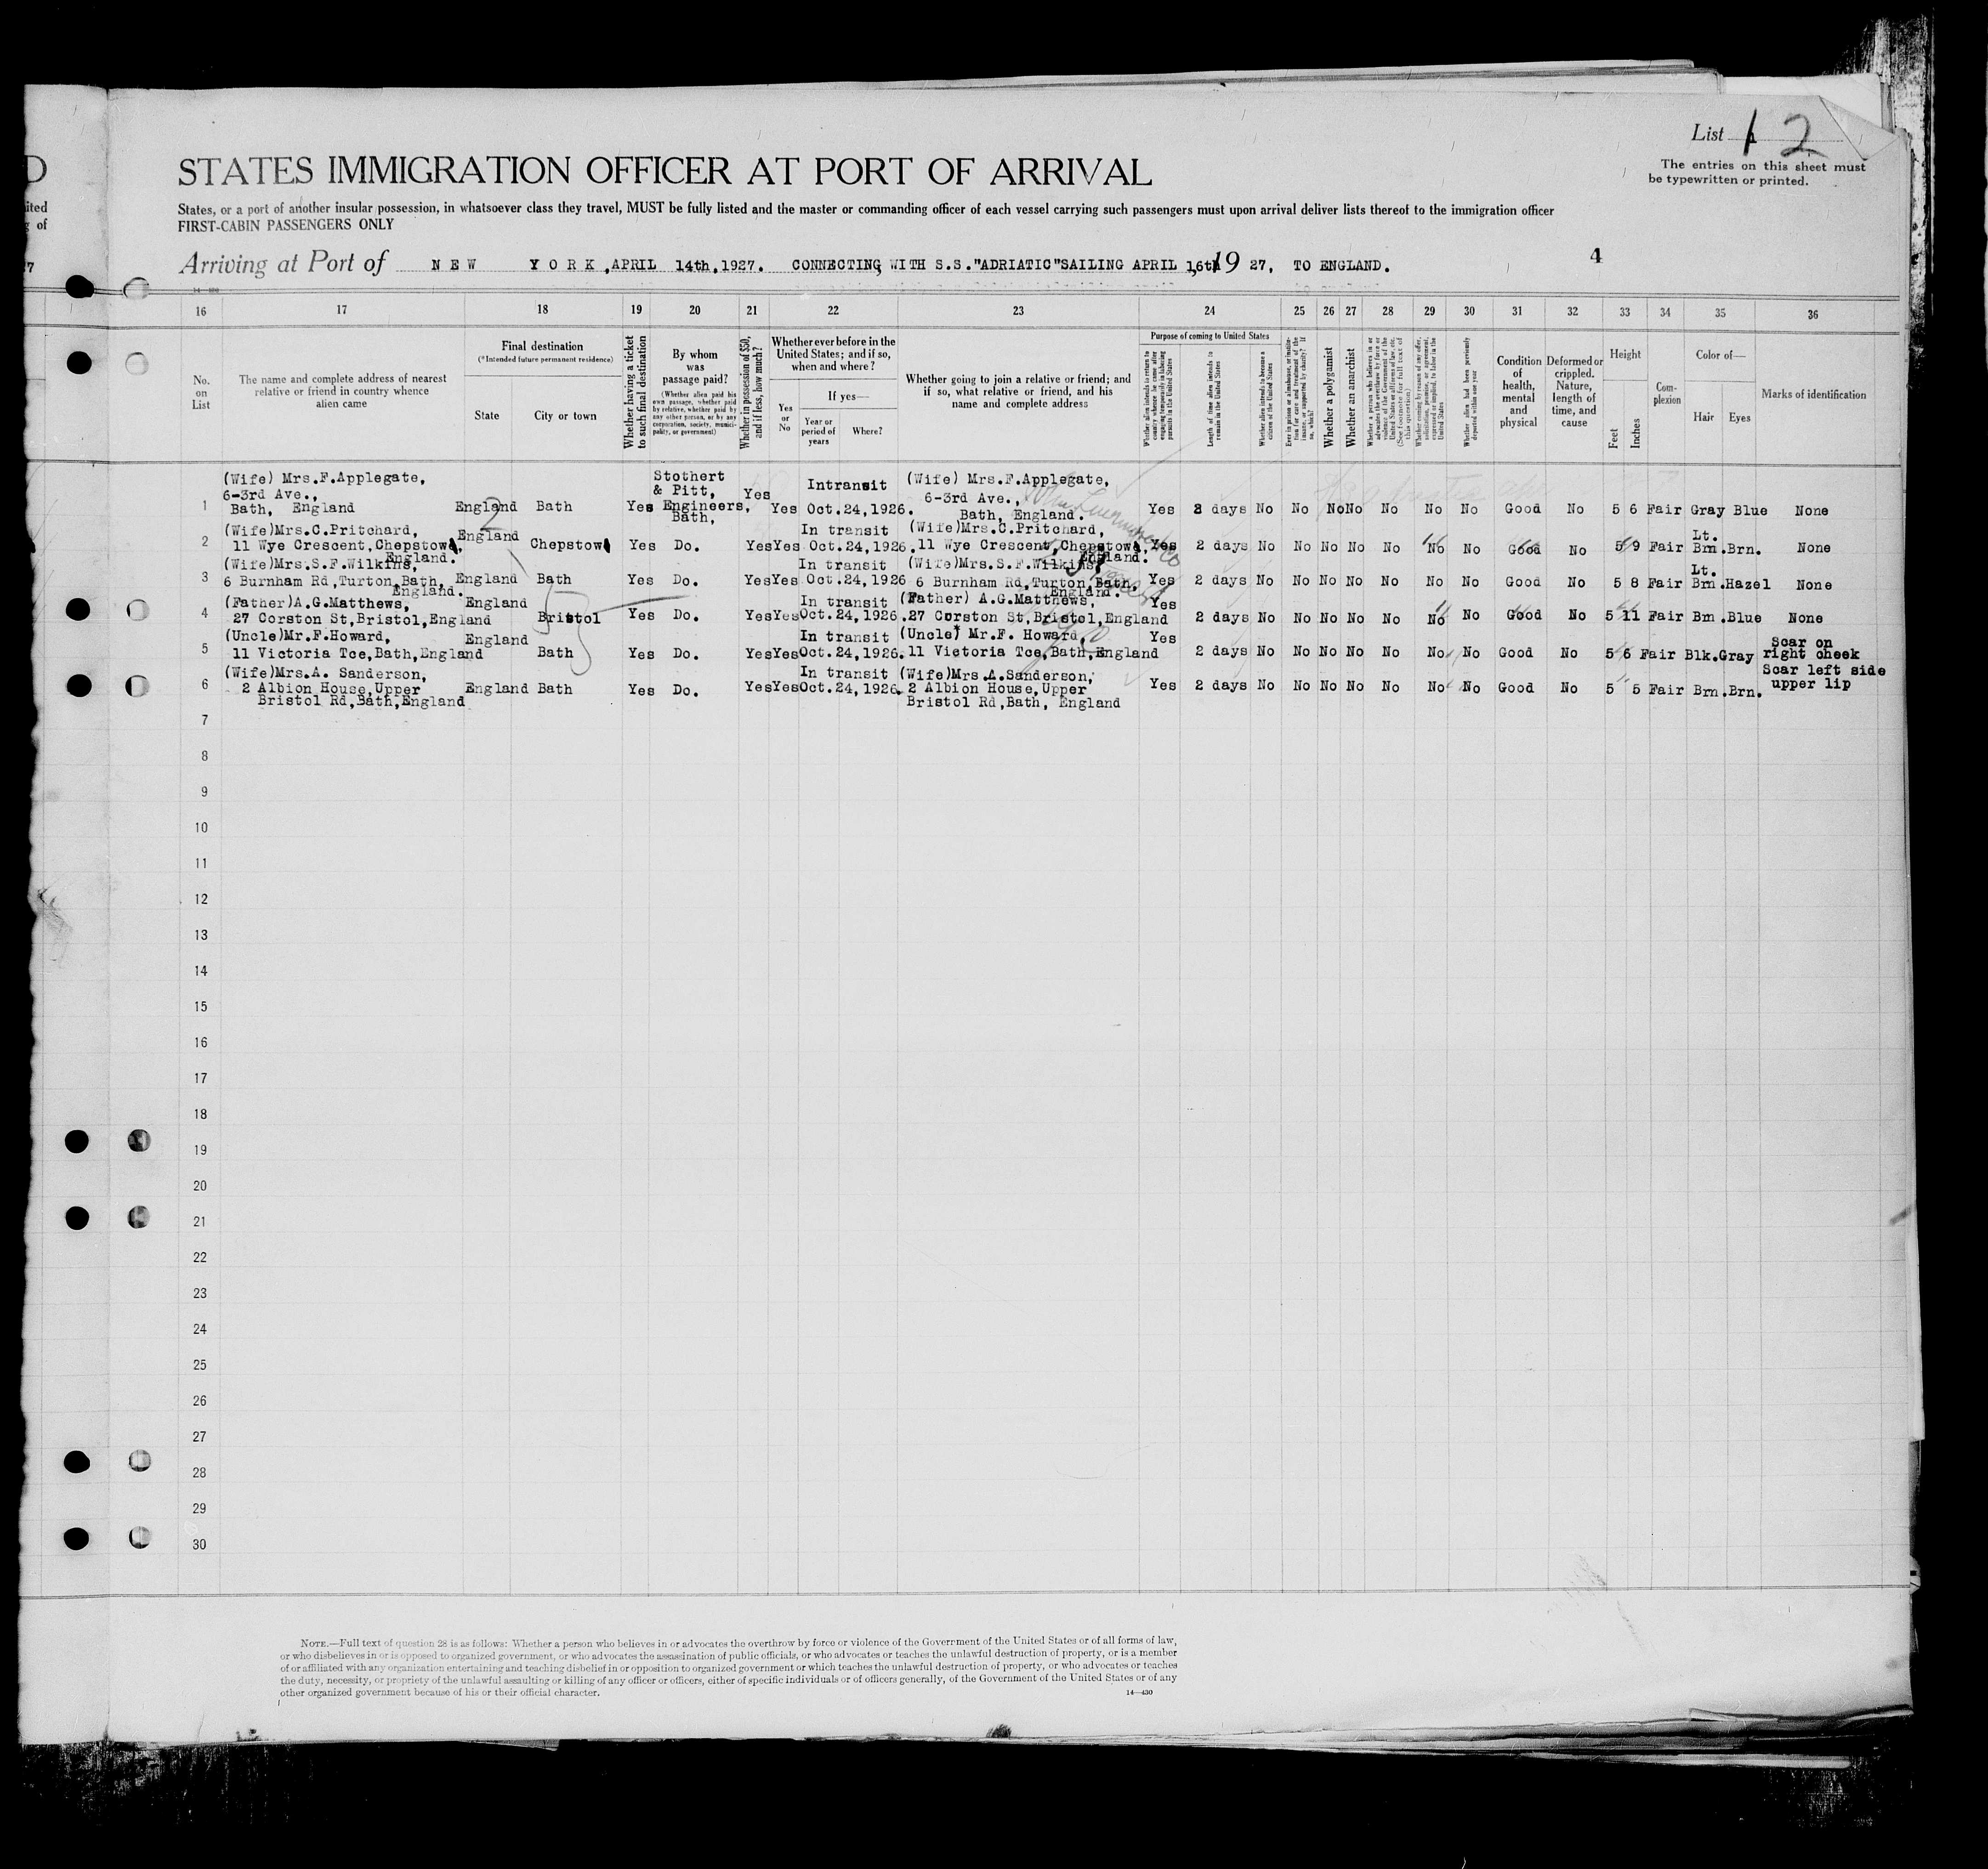 D
ited
g of
7
List 1 2
The entries on this sheet must
be typewritten or printed.
STATES IMMIGRATION OFFICER AT PORT OF ARRIVAL
States, or a port of another insular possession, in whatsoever class they travel, MUST be fully listed and the master or commanding officer of each vessel carrying such passengers must upon arrival deliver lists thereof to the immigration officer
FIRST-CABIN PASSENGERS ONLY
Arriving at Port of NEW YORK, APRIL 14th, 1927. CONNECTING WITH S.S."ADRIATIC"SAILING APRIL 16th 19 27, TO ENGLAND. 4
16 17 18 19 20 21 22 23 24 25 26 27 28 29 30 31 32 33 34 35 36
No. on List
The name and complete address of nearest relative or friend in country whence alien came
Final destination
(*Intended future permanent residence)
State
City or town
Whether having a ticket to such final destination
By whom was passage paid?
(Whether alien paid his own passage, whether paid by relative, whether paid by any other person, or by any corporation, society, municipality, or government)
Whether in possession of $50, and if less, how much?
Whether ever before in the United States; and if so, when and where?
Yes or No
If yes—
Year or period of years
Where?
Whether going to join a relative or friend; and if so, what relative or friend, and his name and complete address
Purpose of coming to United States
Whether alien intends to return to country whence he came after engaging temporarily in laboring pursuits in the United States
Length of time alien intends to remain in the United States
Whether alien intends to become a citizen of the United States
Ever in prison or almshouse, or institution for care and treatment of the insane, or supported by charity? If so, which?
Whether a polygamist
Whether an anarchist
Whether a person who believes in or advocates the overthrow by force or violence of the Government of the United States or all forms of law, etc. (See footnote for full text of this question)
Whether coming by reason of any offer, solicitation, promise, or agreement, expressed or implied, to labor in the United States
Whether alien had been previously deported within one year
Condition of health, mental and physical
Deformed or crippled. Nature, length of time, and cause
Height
Feet
Inches
Complexion
Color of—
Hair
Eyes
Marks of identification
(Wife) Mrs.F.Applegate, Stothert Intransit (Wife) Mrs.F.Applegate,
6-3rd Ave., & Pitt, Yes 6-3rd Ave.,
1 Bath, England England Bath Yes Engineers, Yes Oct.24,1926. Bath, England. Yes 2 days No No No No No No No Good No 5 6 Fair Gray Blue None
Bath,
(Wife)Mrs.C.Pritchard, England In transit (Wife)Mrs.C.Pritchard, Lt.
2 11 Wye Crescent,Chepstow, Chepstow Yes Do. Yes Yes Oct.24,1926. 11 Wye Crescent,Chepstow, Yes 2 days No No No No No No No Good No 5 9 Fair Brn. Brn. None
England. England.
(Wife)Mrs.S.F.Wilkins, In transit (Wife)Mrs.S.F.Wilkins, Lt.
3 6 Burnham Rd,Turton,Bath, England Bath Yes Do. Yes Yes Oct.24,1926 6 Burnham Rd,Turton,Bath, Yes 2 days No No No No No No No Good No 5 8 Fair Brn. Hazel None
England. England.
(Father)A.G.Matthews, England In transit (Father) A.G.Matthews, Yes
4 27 Corston St,Bristol,England Bristol Yes Do. Yes Yes Oct.24,1926. 27 Corston St,Bristol,England 2 days No No No No No No No Good No 5 11 Fair Brn. Blue None
(Uncle)Mr.F.Howard, England In transit (Uncle) Mr.F. Howard, Yes Scar on
5 11 Victoria Tce,Bath,England Bath Yes Do. Yes Yes Oct.24,1926. 11 Victoria Tce,Bath,England 2 days No No No No No No No Good No 5 6 Fair Blk. Gray right cheek
(Wife)Mrs.A. Sanderson, In transit (Wife)Mrs.A.Sanderson, Scar left side
6 2 Albion House,Upper England Bath Yes Do. Yes Yes Oct.24,1926. 2 Albion House,Upper Yes 2 days No No No No No No No Good No 5 5 Fair Brn. Brn. upper lip
Bristol Rd,Bath,England Bristol Rd,Bath, England
7
8
9
10
11
12
13
14
15
16
17
18
19
20
21
22
23
24
25
26
27
28
29
30
NOTE.—Full text of question 28 is as follows: Whether a person who believes in or advocates the overthrow by force or violence of the Government of the United States or of all forms of law,
or who disbelieves in or is opposed to organized government, or who advocates the assassination of public officials, or who advocates or teaches the unlawful destruction of property, or is a member
of or affiliated with any organization entertaining and teaching disbelief in or opposition to organized government or which teaches the unlawful destruction of property, or who advocates or teaches
the duty, necessity, or propriety of the unlawful assaulting or killing of any officer or officers, either of specific individuals or of officers generally, of the Government of the United States or of any
other organized government because of his or their official character.
14—430